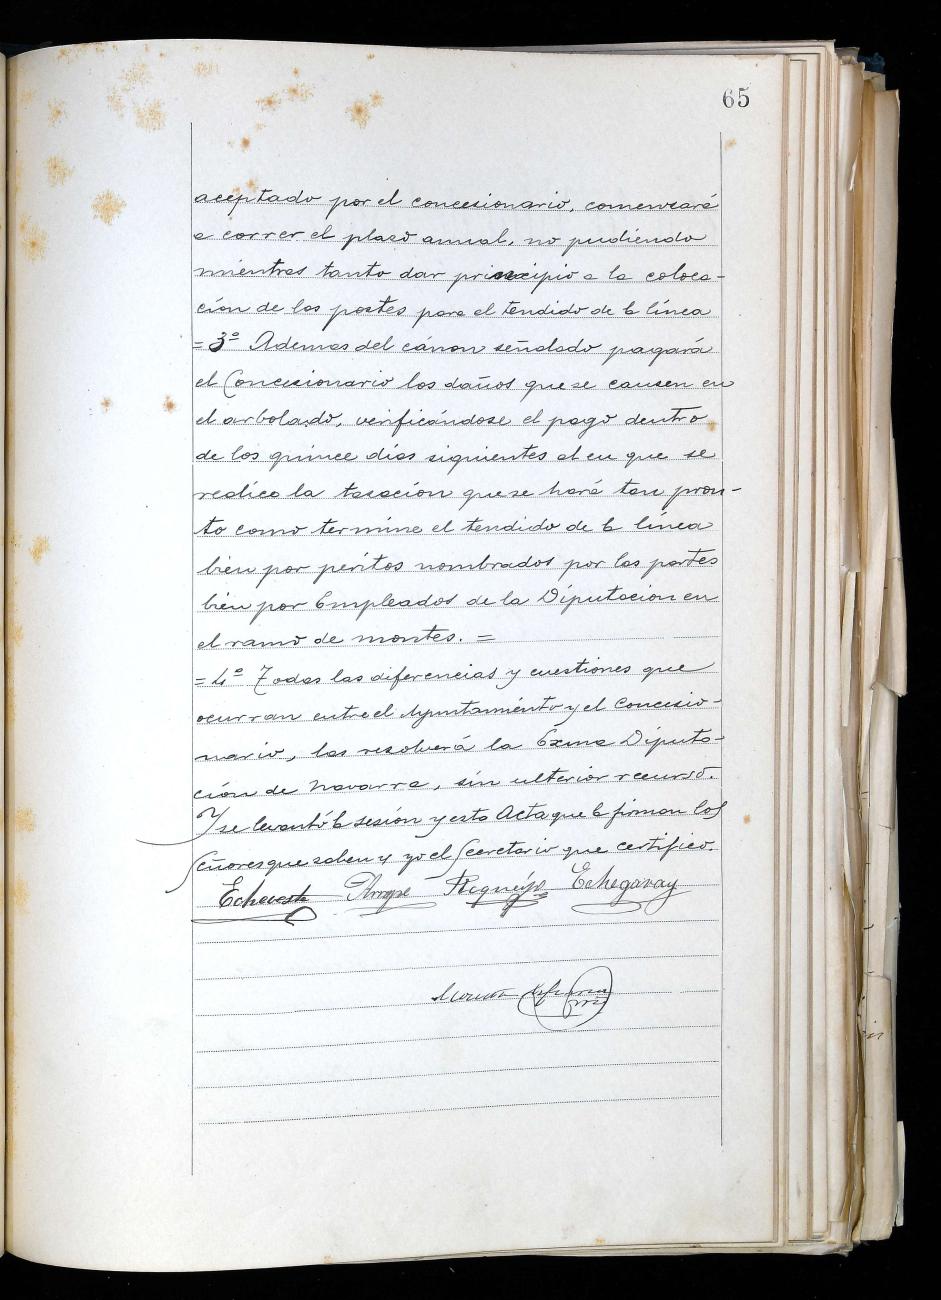 65
aceptado por el concesionario, comenzará
a correr el plazo anual, no pudiendo
mientras tanto dar principio a la coloca-
ción de los postes para el tendido de la línea
= 3º Ademas del cánon señalado pagará
el Concesionario los daños que se causen en
el arbolado, verificándose el pago dentro
de los quince dias siguientes al en que se
realice la tasación que se hará tan pron-
to como termine el tendido de la línea
bien por péritos nombrados por las partes
bien por Empleados de la Diputacion en
el ramo de montes. =
= 4º Todas las diferencias y cuestiones que
ocurran entre el Ayuntamiento y el Concesio-
nario, las resolverá la Exma Diputa-
ción de Navarra, sin ulterior recurso.
Y se levantó la sesión y esta Acta que la firman los
Señores que saben y yo el Secretario que certifico.
Echeveste Requejo Echegaray